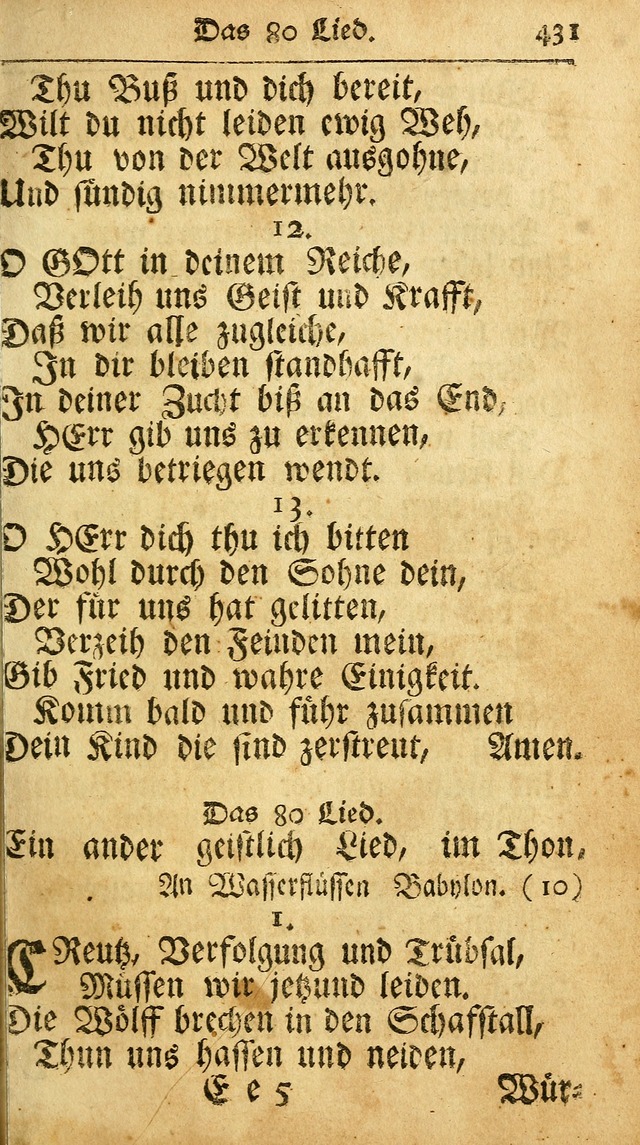 Das 80 Lied. 431
Thu Buß und dich bereit,
Wilt du nicht leiden ewig Weh,
Thu von der Welt ausgohne,
Und sündig nimmermehr.
12.
O GOtt in deinem Reiche,
Verleih uns Geist und Krafft,
Daß wir alle zugleiche,
In dir bleiben standhafft,
In deiner Zucht biß an das End,
HErr gib uns zu erkennen,
Die uns betriegen wendt.
13.
O HErr dich thu ich bitten
Wohl durch den Sohne dein,
Der für uns hat gelitten,
Verzeih den Feinden mein,
Gib Fried und wahre Einigkeit.
Komm bald und führ zusammen
Dein Kind die sind zerstreut, Amen.
Das 80 Lied.
Ein ander geistlich Lied, im Thon,
An Wasserflüssen Babylon. (10)
1.
CReutz, Verfolgung und Trübsal,
Müssen wir jetzund leiden.
Die Wölff brechen in den Schafstall,
Thun uns hassen und neiden,
E e 5 Wür-